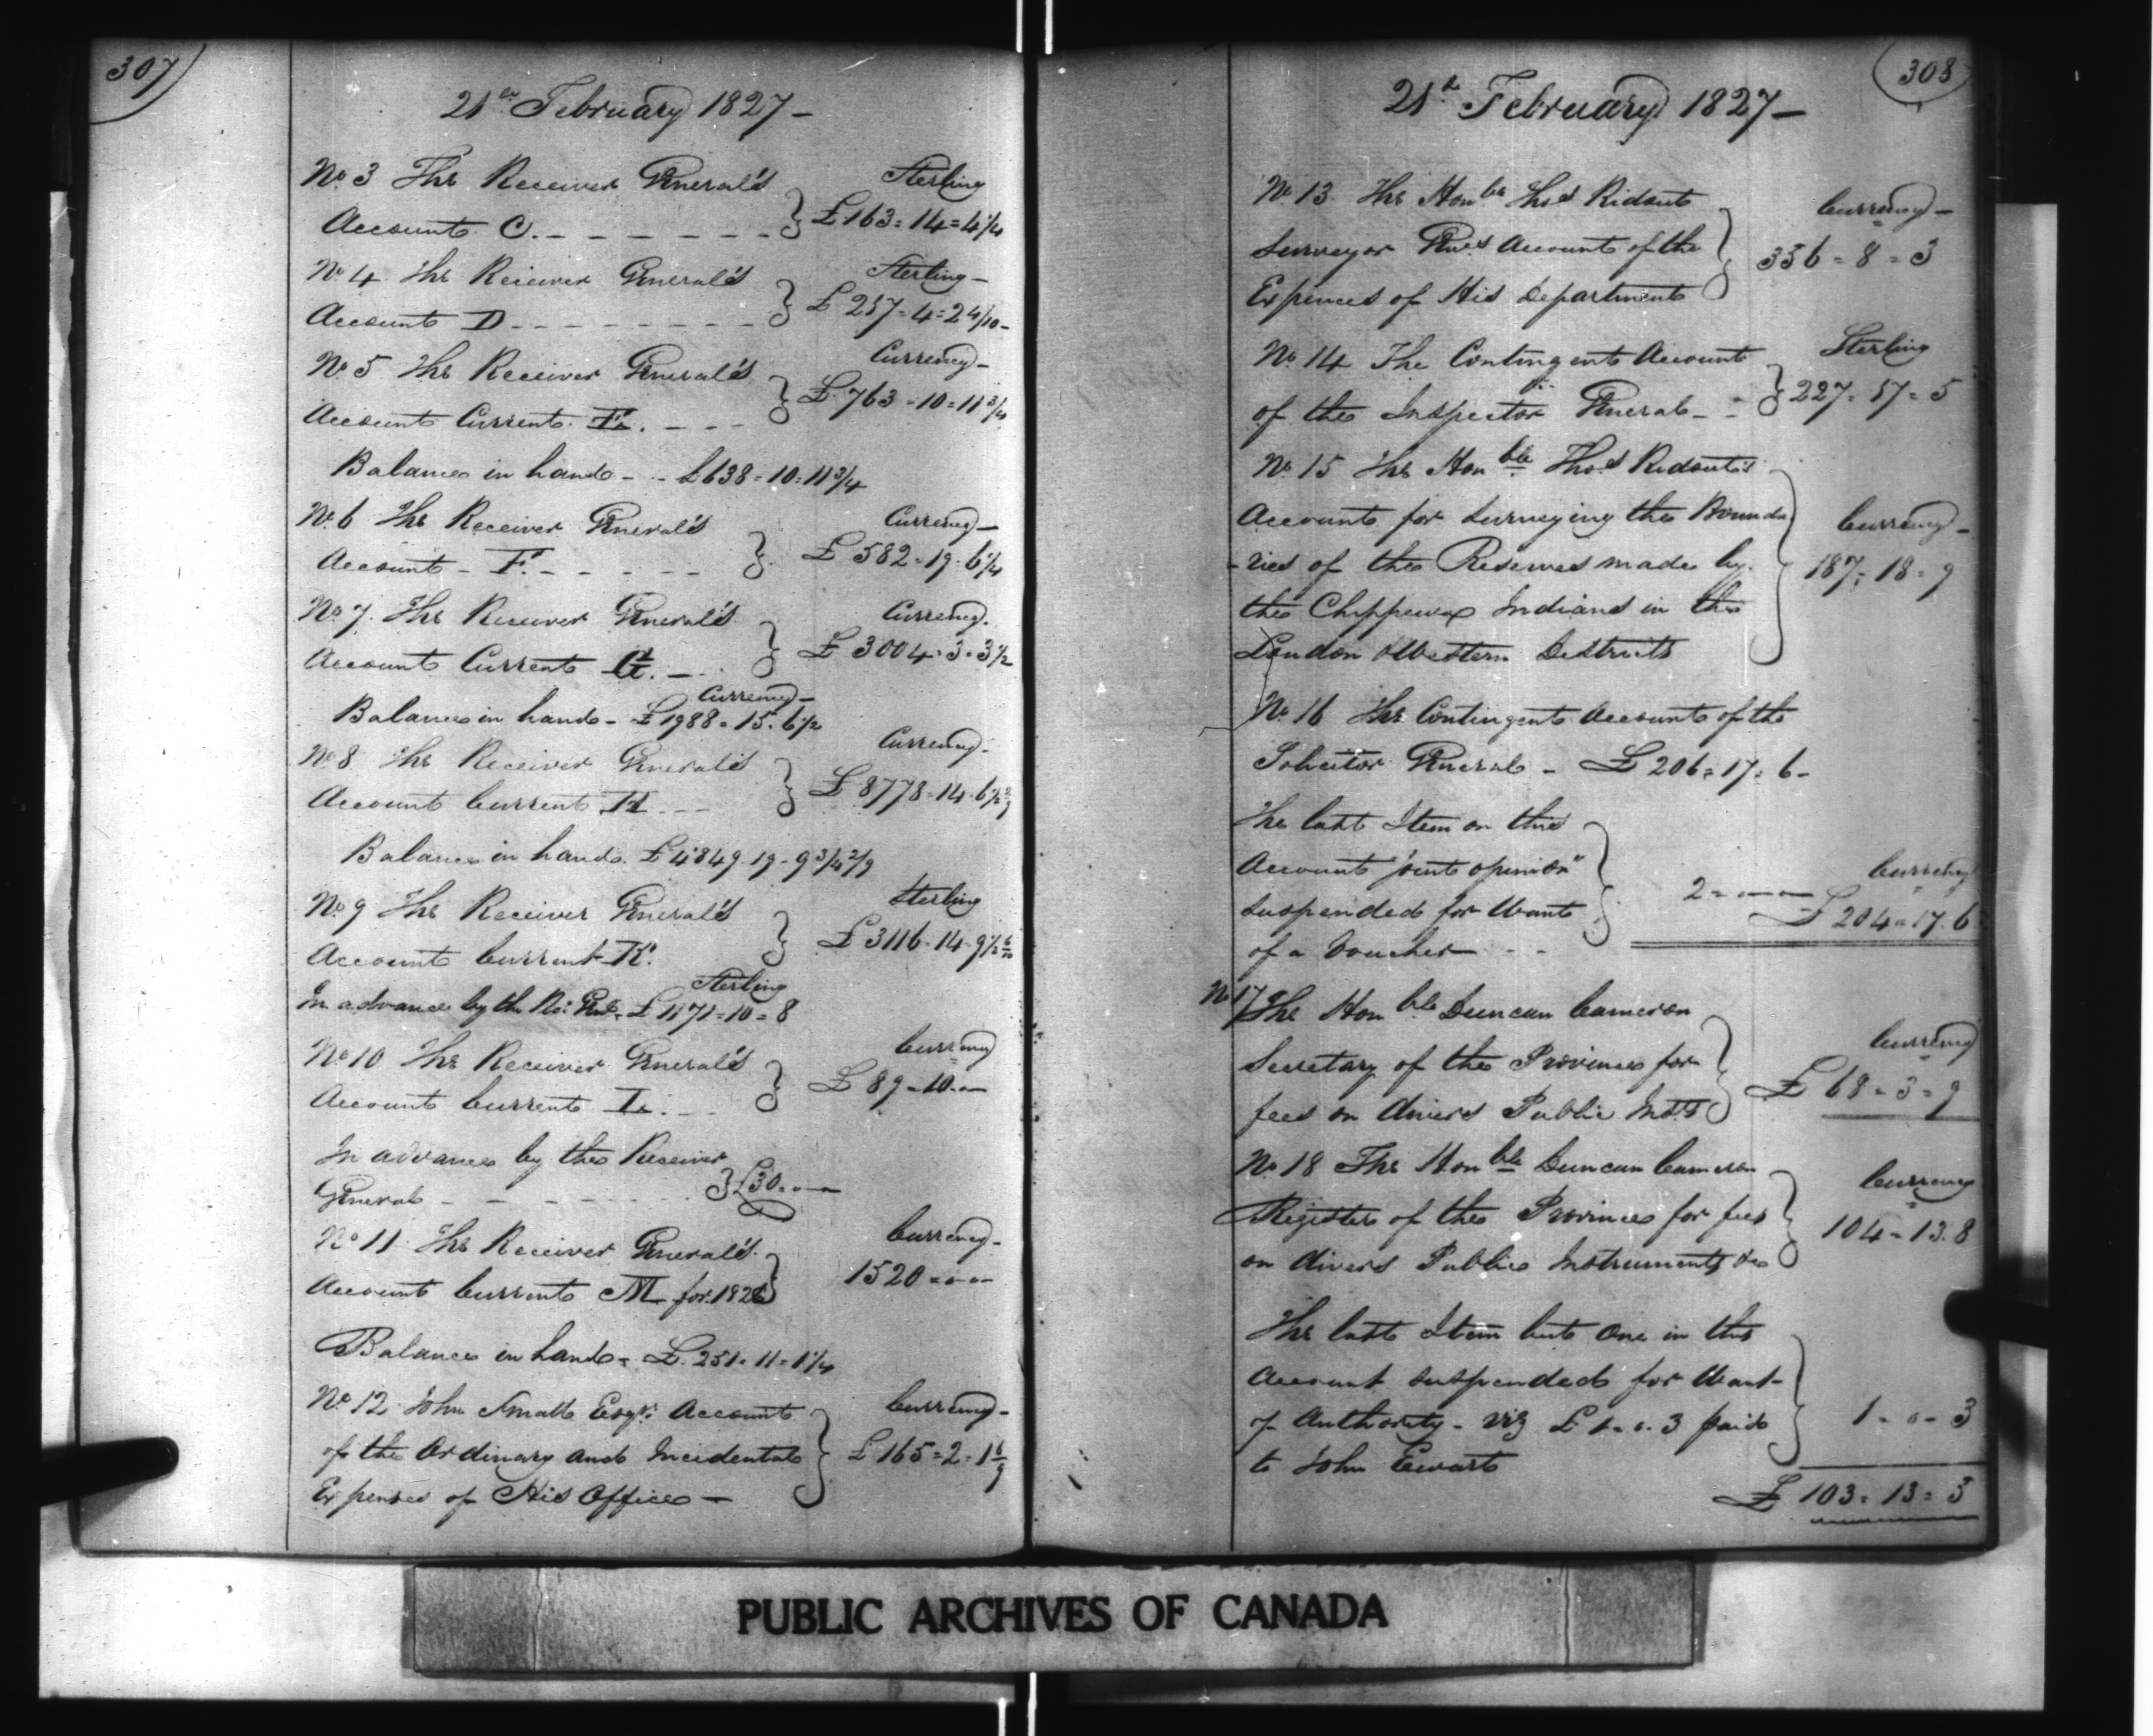 307
21st February 1827 –
No 3 The Receiver General's
Sterling
Account C. – – – – – – – } £163 = 14 = 4 1/4
No 4 The Receiver General's
Sterling –
Account D – – – – – – – – } £ 257 = 4 = 2 4/10 –
No 5 The Receiver General's
Currency –
Account Current E. – – – } £ 763 – 10 = 11 3/4
Balance in hand – – £638 = 10 = 11 3/4
No 6 The Receiver General's
Currency –
Account – F. – – – – – – } £ 582 = 19 = 6 1/4
No 7. The Receiver General's
Currency.
Account Current G. – – } £ 3004 = 3 = 3 1/2
Currency –
Balance in hand – £1988 = 15. 6 1/2
No 8 The Receiver General's
Currency –
Account Current H – – – } £ 8778 = 14 – 6 1/2
Balance in hand. £4849 – 19 – 9 3/4 2/9
No 9 The Receiver General's
Sterling
Account Current K. } £ 3116 – 14 – 9 1/2 6/10
Sterling
In advance by the Rec: Genl. £ 1171 = 10 = 8
No 10 The Receiver General's
Currency
Account Current L. – – } £ 89 – 10 – 0 –
In advance by the Receiver
General – – – – – – – } £30. – 0 – 0
No 11 The Receiver General's
Currency –
Account Current M for 1826 } 1520 = 0 – 0 –
Balance in hand = £. 251 = 11 = 1 1/4
No 12 John Small Esqr: Account
Currency –
of the Ordinary and Incidental } £ 165 = 2 = 1 6/9
Expenses of His Office –
308
21st February 1827 –
No 13. The Honble Thos Ridout
Currency –
Surveyor Genls Account of the } 356 = 8 = 3
Expences of His Department
No 14 The Contingent Account
Sterling
of the Inspector General – – } 227 = 17 = 5
No 15 The Honble Thos Ridout's
Account for surveying the Bounda
Currency –
-ries of the Reserves made by } 187 = 18 = 9
the Chippewa Indians in the
London & Western Districts
No 16 The Contingent Account of the
Solicitor General – £ 206 = 17 = 6 –
The last Item on this
Account "joint opinion"
Currency
suspended for Want } 2 = – – £ 204 = 17. 6
of a Voucher – –
No 17 The Honble Duncan Cameron
Currency
Secretary of the Province for } £ 68 = 3 = 9
fees on divers Public Insts
No 18 The Honble Duncan Cameron
Currency
Register of the Province for fees } 104 – 13. 8
on divers Public Instruments &c
The last Item but One in this
Account suspended for Want
of Authority – viz £ 1 – 0. 3 paid } 1 – 0 – 3
to John Ewart
£ 103 = 13 = 3
PUBLIC ARCHIVES OF CANADA